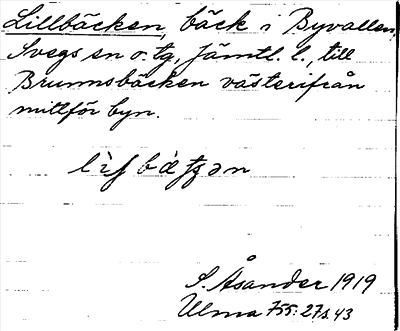 Lillbäcken, bäck i Byvallen,
Svegs sn o. tg, Jämtl. l., till
Brunnsbäcken västerifrån
mittför byn.
S. Åsander 1919
Ulma 755: 27 s. 43